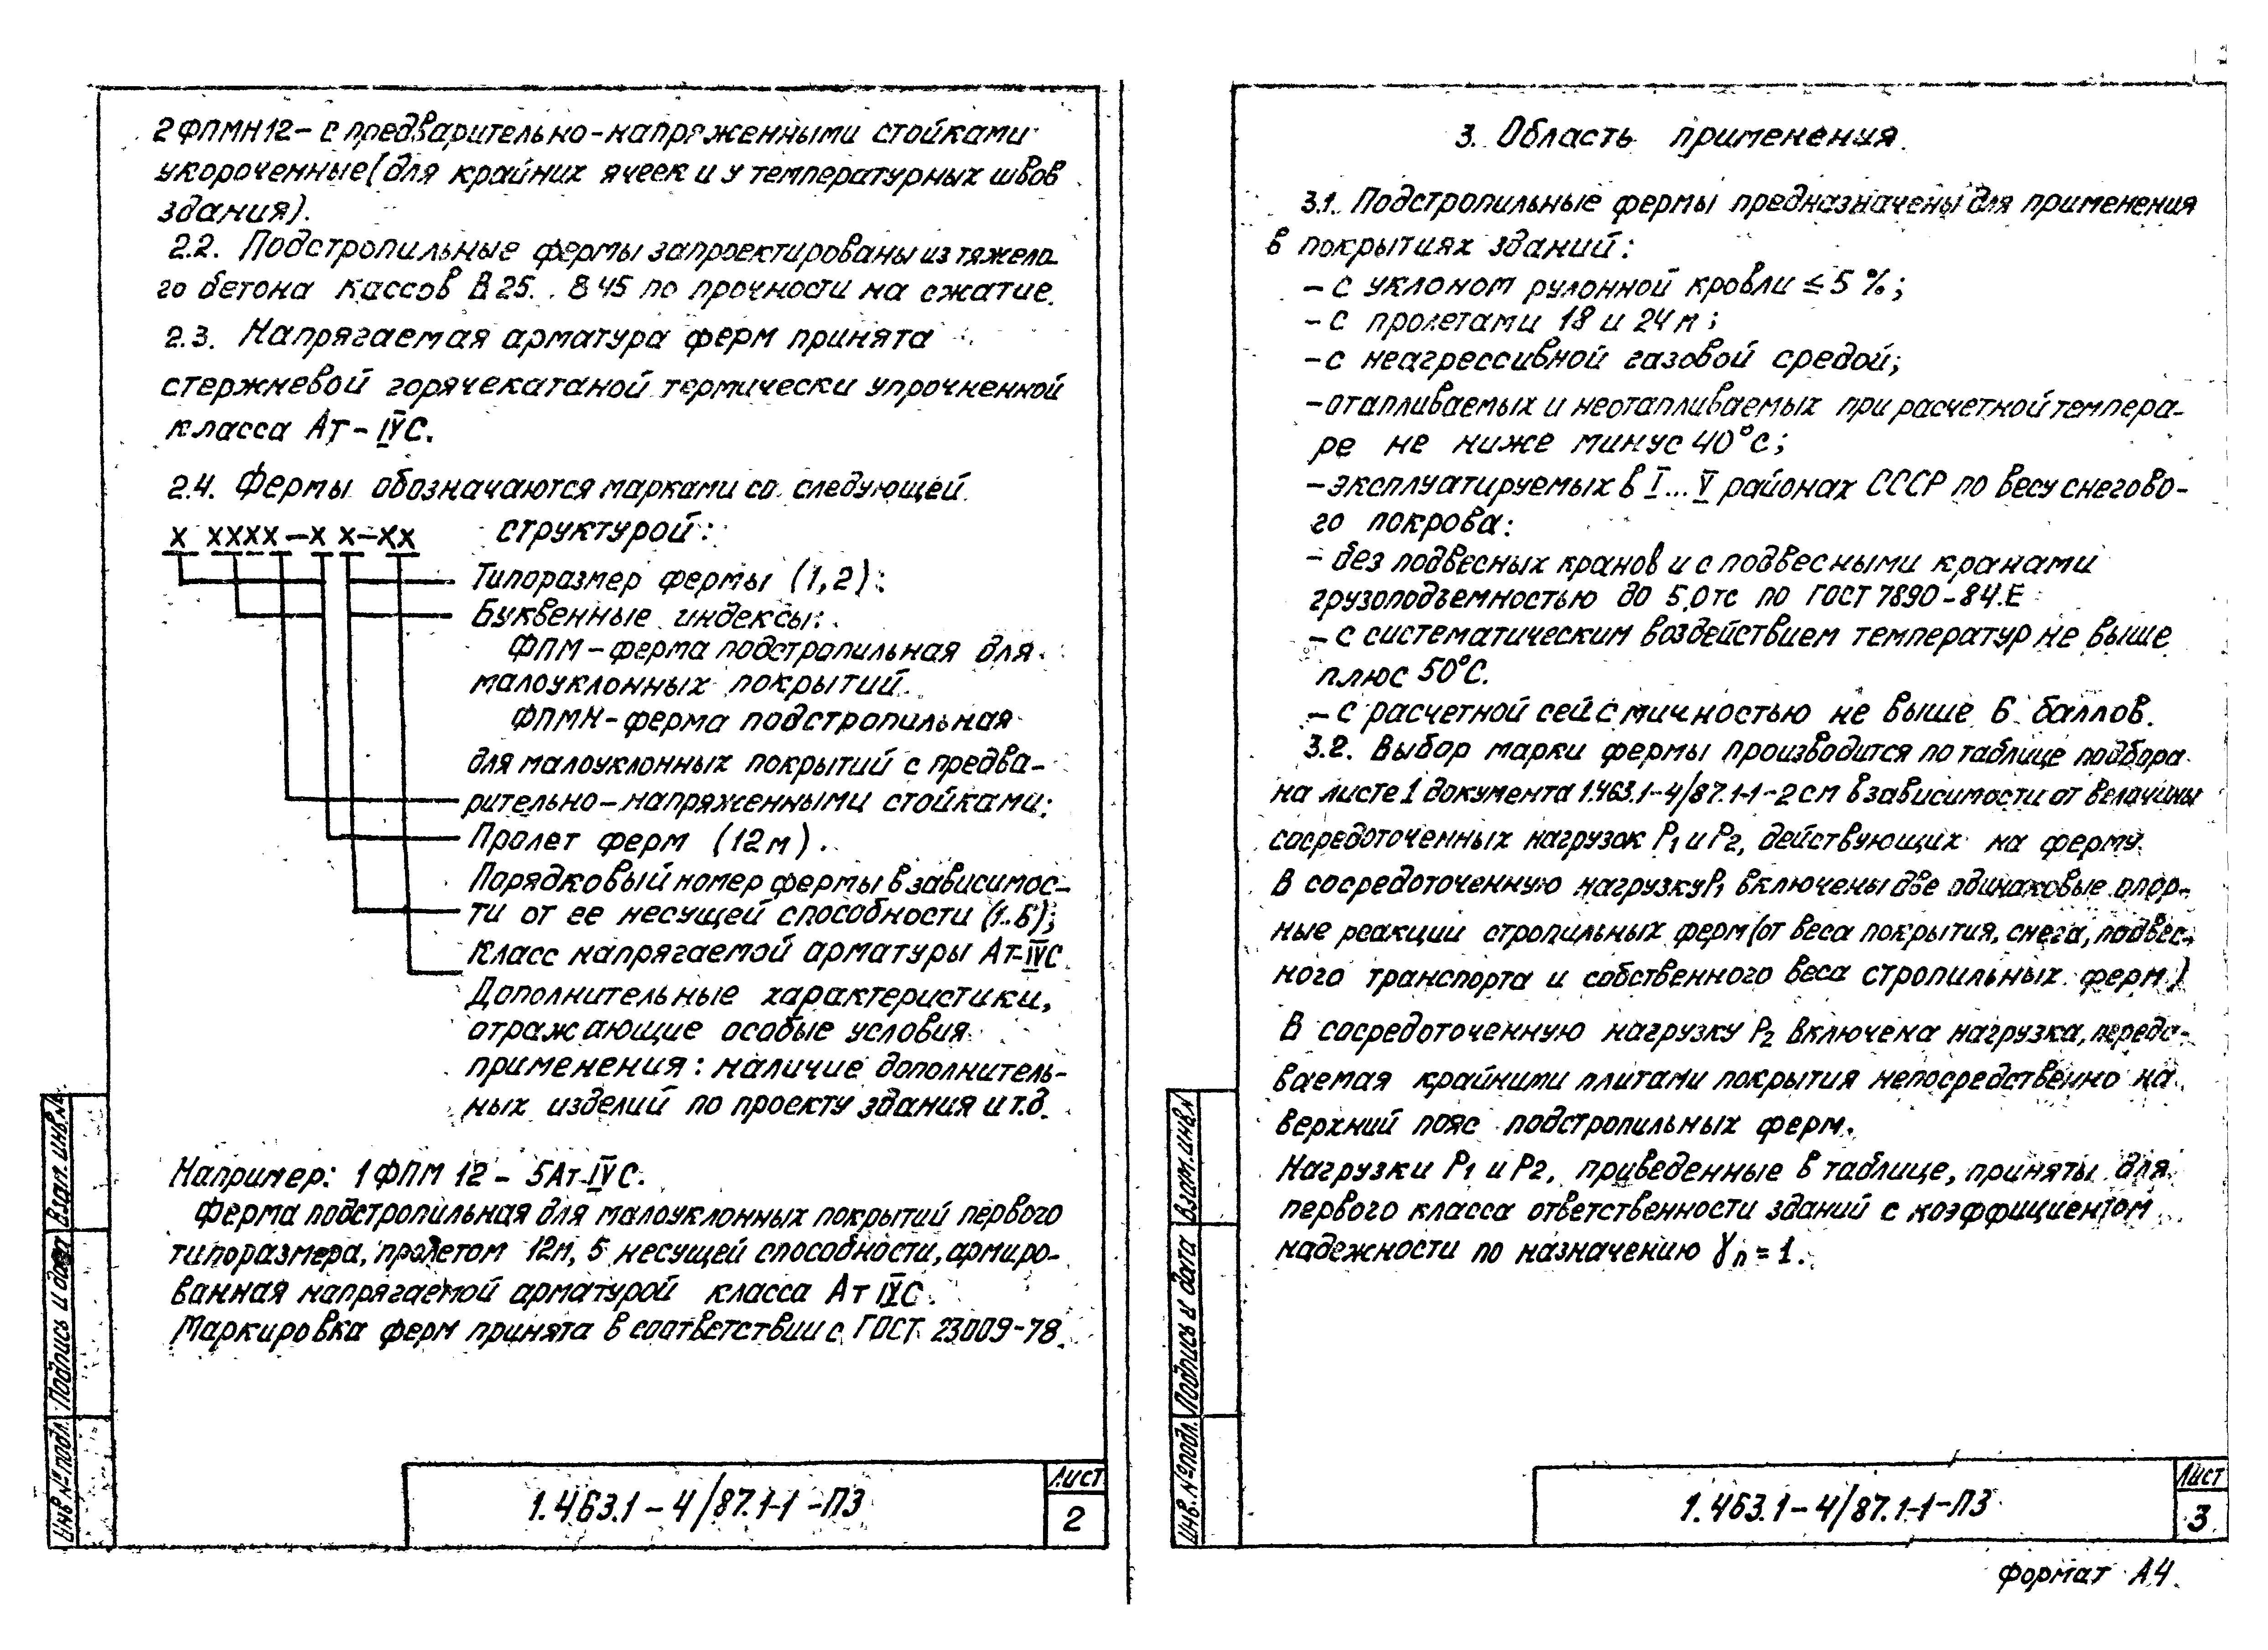 2ФПМН12 - с предварительно-напряженными стойками
укороченные (для крайних ячеек и у температурных швов
здания).
2.2. Подстропильные фермы запроектированы из тяжело-
го бетона кассов В25...В45 по прочности на сжатие.
2.3. Напрягаемая арматура ферм принята
стержневой горячекатаной термически упрочненной
класса Ат-IVС.
2.4. Фермы обозначаются марками со следующей
структурой:
х хххх-х х-хх
Типоразмер фермы (1,2):
Буквенные индексы:
ФПМ-ферма подстропильная для
малоуклонных покрытий.
ФПМН-ферма подстропильная
для малоуклонных покрытий с предва-
рительно-напряженными стойками;
Пролет ферм (12м).
Порядковый номер фермы в зависимос-
ти от ее несущей способности (1..6);
Класс напрягаемой арматуры Ат-IVС
Дополнительные характеристики,
отражающие особые условия
применения: наличие дополнитель-
ных изделий по проекту здания и т.д.
Например: 1ФПМ 12 - 5Ат-IVС.
Ферма подстропильная для малоуклонных покрытий первого
типоразмера, пролетом 12м, 5 несущей способности, армиро-
ванная напрягаемой арматурой класса Ат IVС.
Маркировка ферм принята в соответствии с ГОСТ 23009-78.
Взап. инв.№
Подпись и дата
Инв № подл.
1.463.1-4/87.1-1-ПЗ
Лист
2
3. Область применения.
3.1. Подстропильные фермы предназначены для применения
в покрытиях зданий:
- с уклоном рулонной кровли ≤ 5 %;
- с пролетами 18 и 24 м;
- с неагрессивной газовой средой;
- отапливаемых и неотапливаемых при расчетной темпера-
ре не ниже минус 40°С;
- эксплуатируемых в I...V районах СССР по весу снегово-
го покрова:
- без подвесных кранов и с подвесными кранами
грузоподъемностью до 5,0тс по ГОСТ 7890-84.Е
- с систематическим воздействием температур не выше
плюс 50°С.
- с расчетной сейсмичностью не выше 6 баллов.
3.2. Выбор марки фермы производится по таблице подбора
на листе 1 документа 1.463.1-4/87.1-1-2см в зависимости от величины
сосредоточенных нагрузок Р1 и Р2, действующих на ферму.
В сосредоточенную нагрузку Р1 включены две одинаковые опор-
ные реакции стропильных ферм (от веса покрытия, снега, подвес-
ного транспорта и собственного веса стропильных ферм.)
В сосредоточенную нагрузку Р2 включена нагрузка, переда-
ваемая крайними плитами покрытия непосредственно на
верхний пояс подстропильных ферм.
Нагрузки Р1 и Р2, приведенные в таблице, приняты для
первого класса ответственности зданий с коэффициентом
надежности по назначению γn = 1.
Взам.инв.№
Подпись и дата
Инв.№подл.
1.463.1-4/87.1-1-ПЗ
Лист
3
формат А4